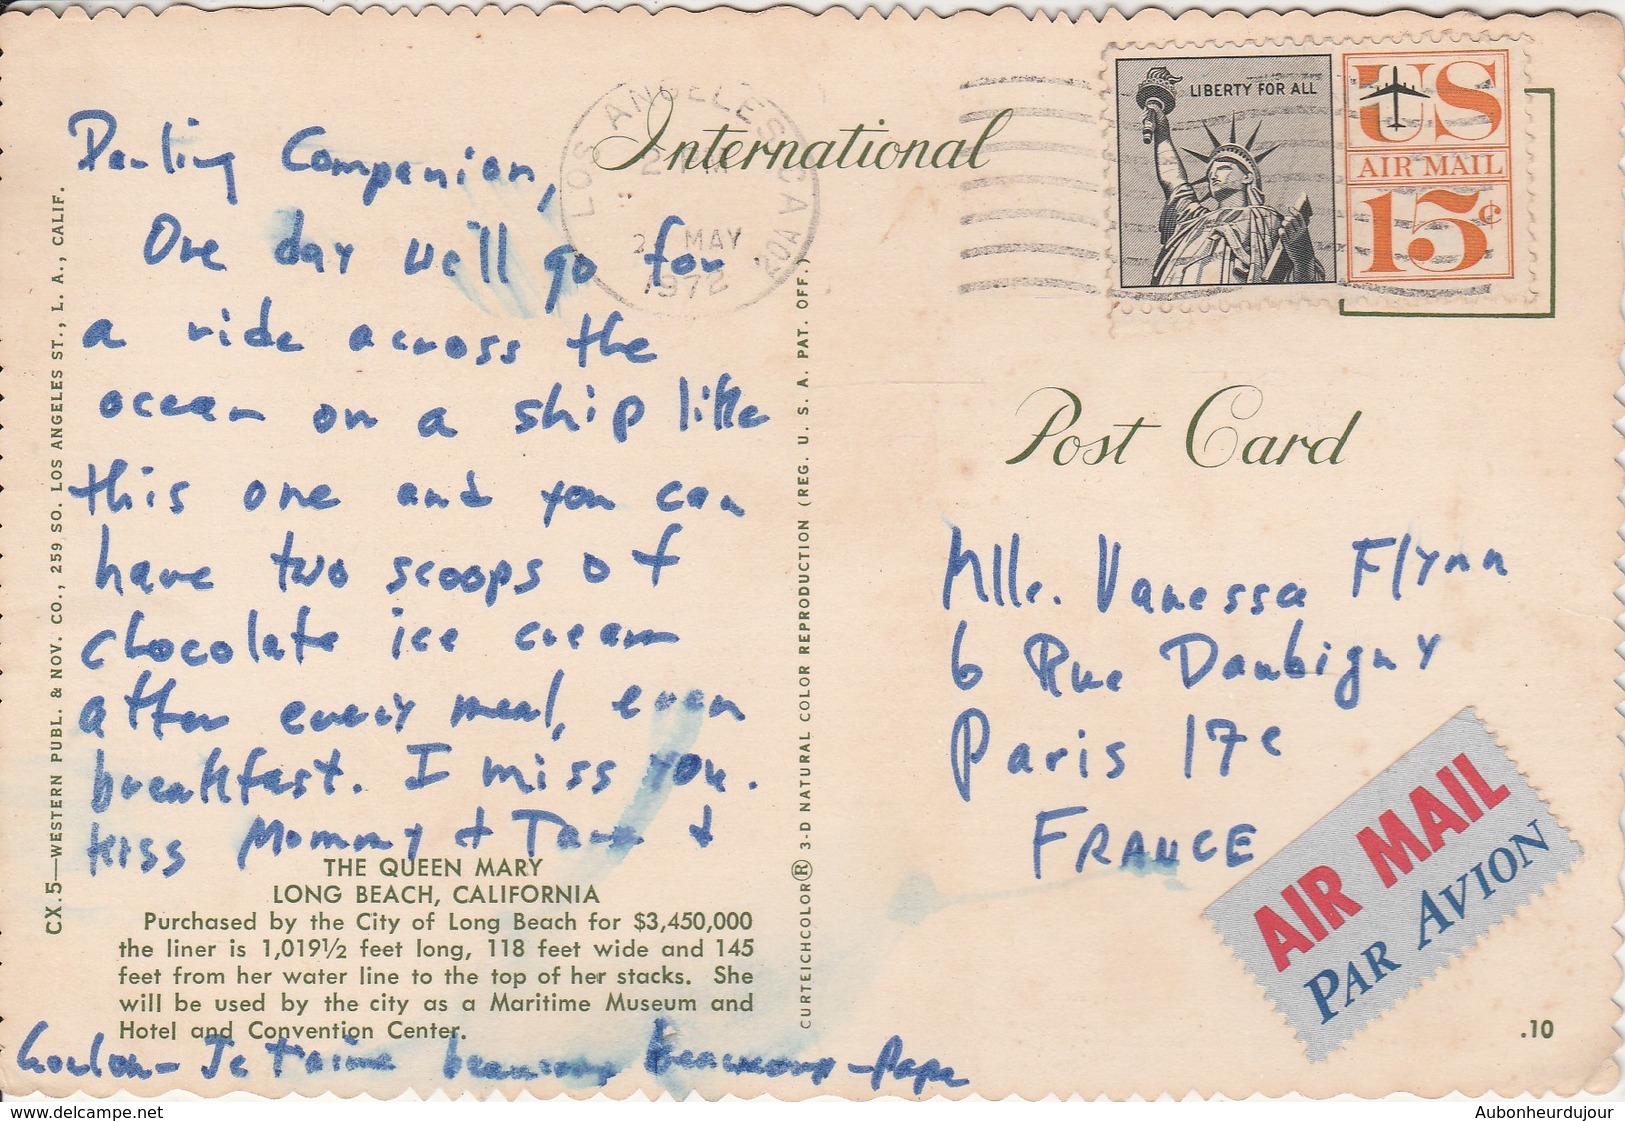 Darling Companion,
One day we'll go for
a ride across the
ocean on a ship like
this one and you can
have two scoops of
chocolate ice cream
after every meal, even
breakfast. I miss you.
kiss Mommy + Tara +
THE QUEEN MARY
LONG BEACH, CALIFORNIA
Purchased by the City of Long Beach for $3,450,000
the liner is 1,019½ feet long, 118 feet wide and 145
feet from her water line to the top of her stacks. She
will be used by the city as a Maritime Museum and
Hotel and Convention Center.
Je t'aime beaucoup beaucoup - Papa
CX.5—WESTERN PUBL. & NOV. CO., 259 SO. LOS ANGELES ST., L. A., CALIF.
CURTEICHCOLOR® 3-D NATURAL COLOR REPRODUCTION (REG. U. S. A. PAT. OFF.)
International
LOS ANGELES, CA
PM
MAY
1972
LIBERTY FOR ALL
US
AIR MAIL
15¢
Post Card
Mlle. Vanessa Flynn
6 Rue Daubigny
Paris 17e
FRANCE
AIR MAIL
PAR AVION
.10
www.delcampe.net
Aubonheurdujour